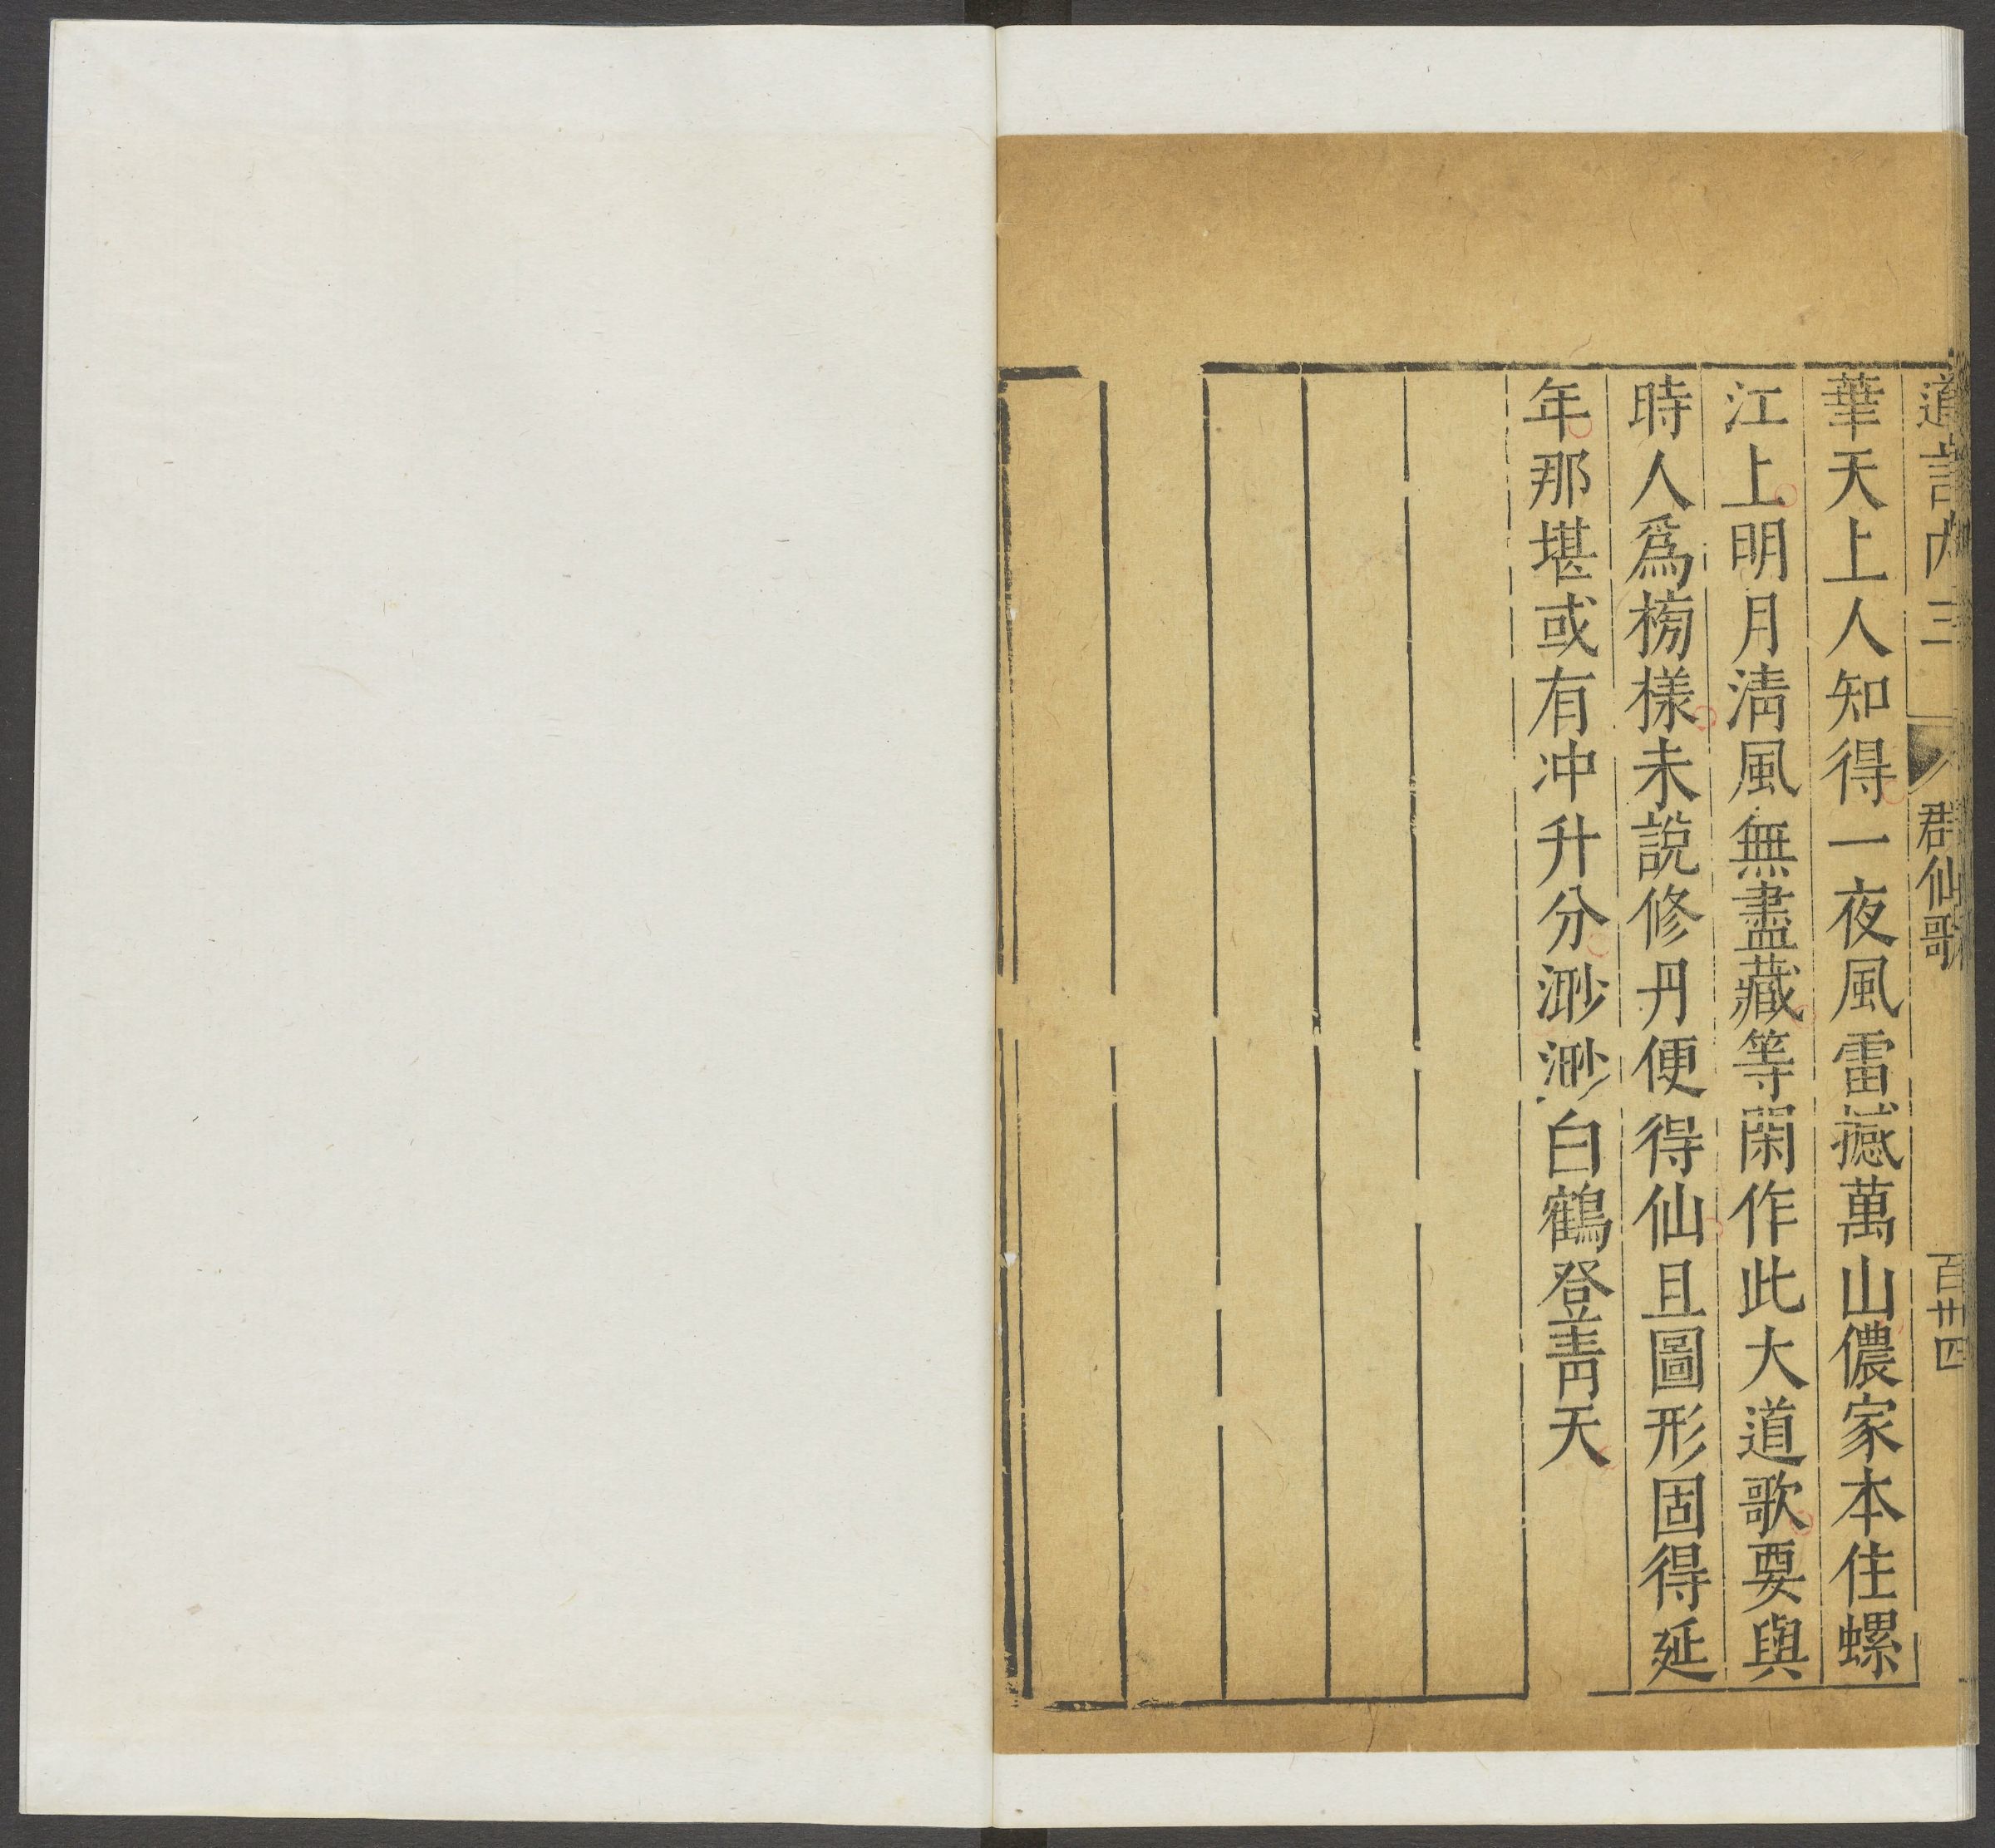 道言内三 群仙歌 百卅四
華天上人知得一夜風雷撼萬山儂家本住螺
江上明月清風無盡藏等閑作此大道歌要與
時人爲榜樣未說修丹便得仙且圖形固得延
年那堪或有冲升分渺渺白鶴登青天